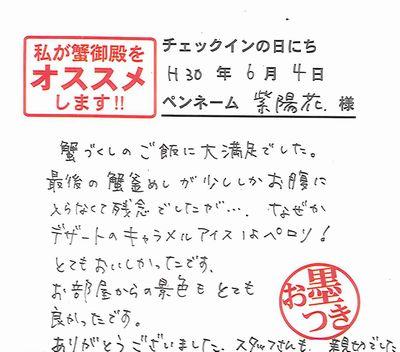 私が蟹御殿を
オススメ
します!!
チェックインの日にち
H30 年 6 月 4 日
ペンネーム 紫陽花 様
蟹づくしのご飯に大満足でした。
最後の蟹釜めしが少ししかお腹に
入らなくて残念でしたが…. なぜか
デザートのキャラメルアイスはペロリ!
とてもおいしかったです、
お部屋からの景色もとても
良かったです。
ありがとうございました、スタッフさんも、親切でした
お墨つき